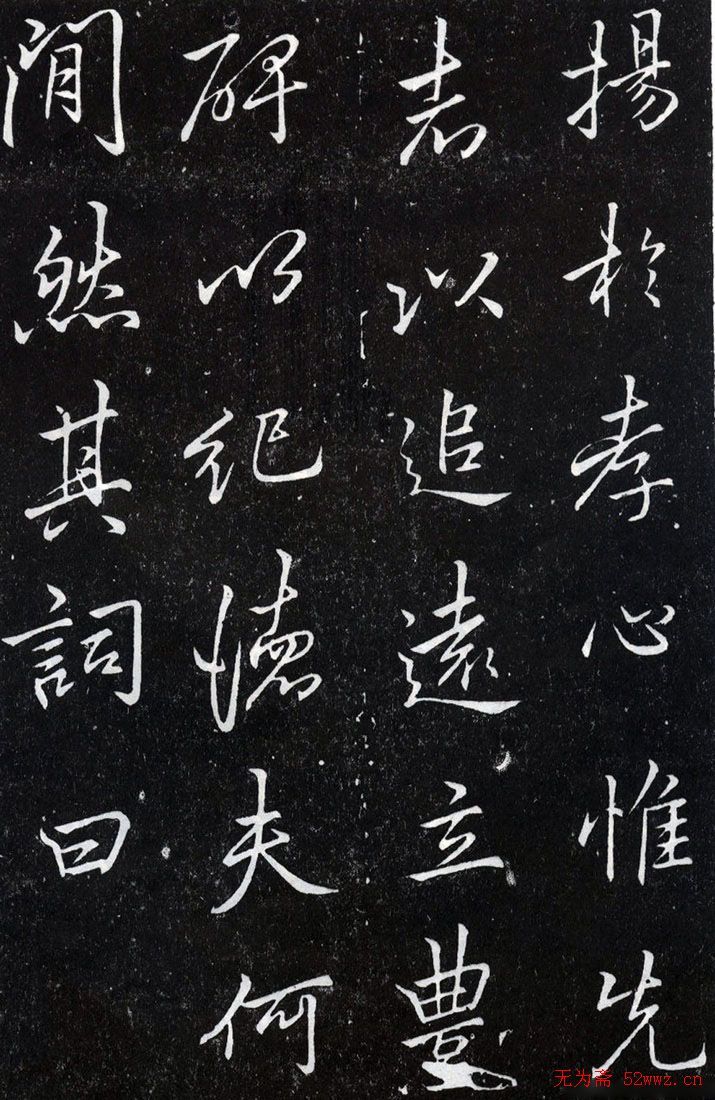 揚於孝心惟先
者以追遠立豐
碑以紀德夫何
間然其詞曰
无为斋 52wwz.cn